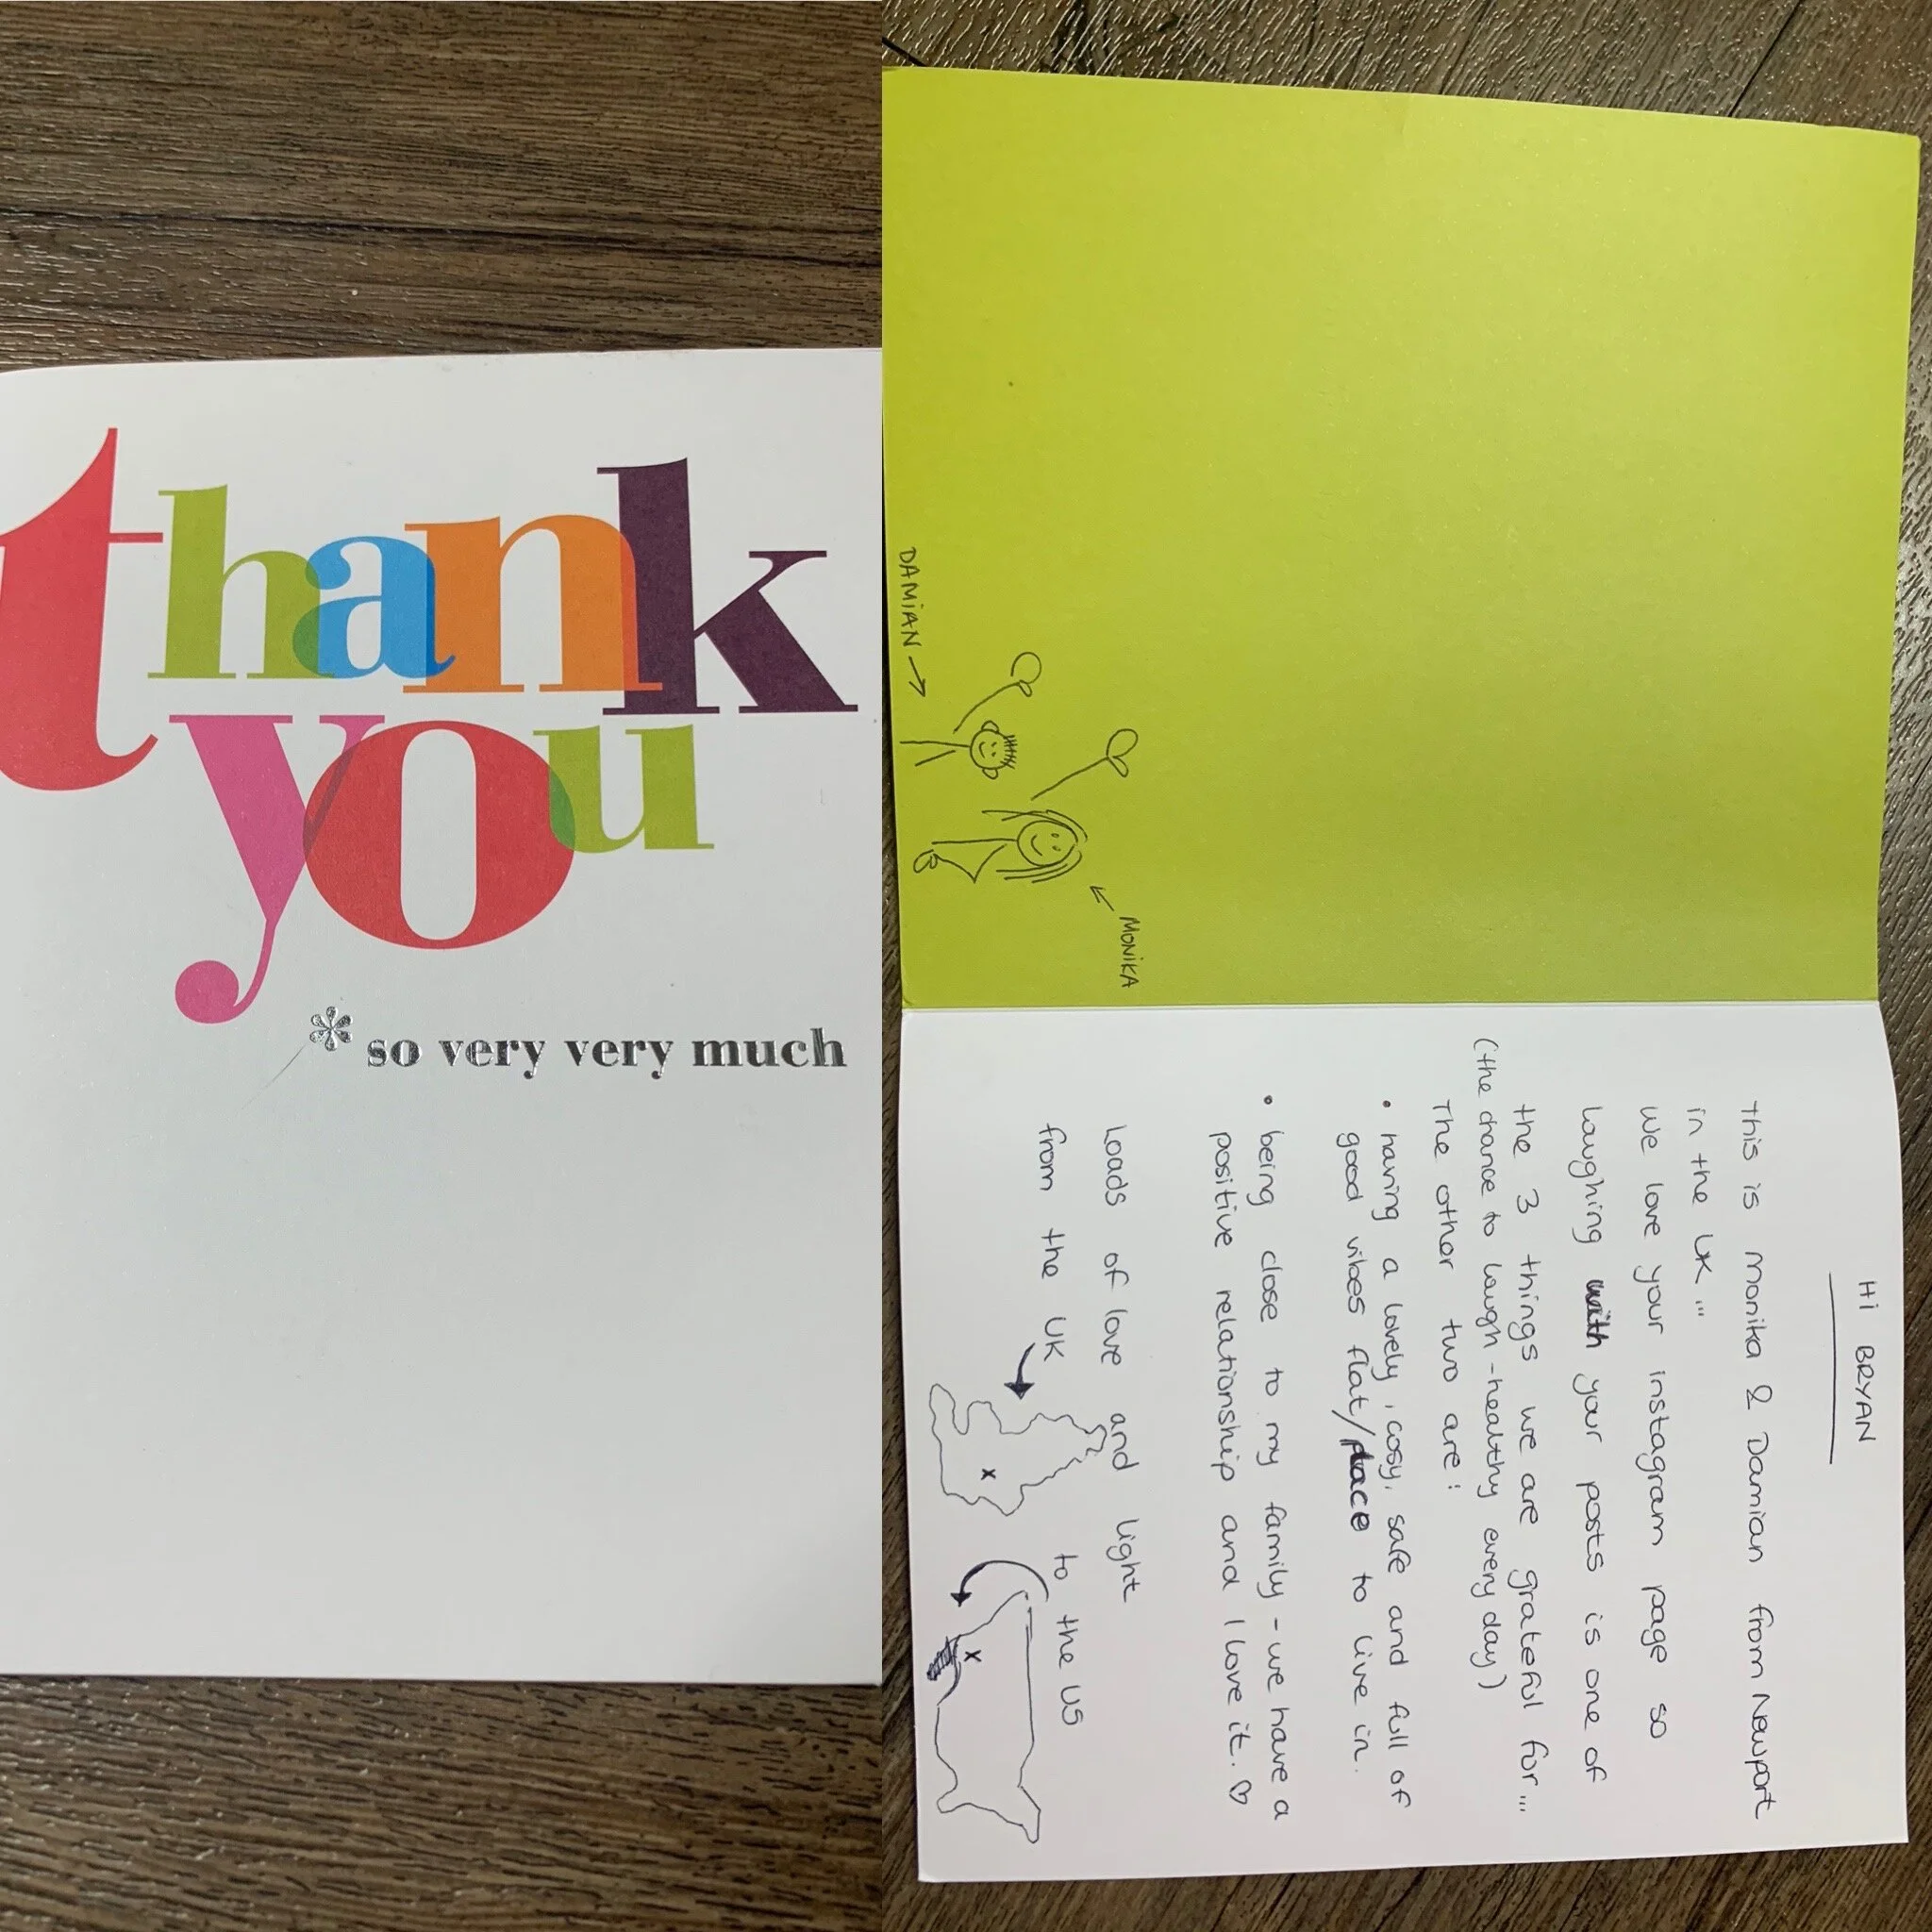 thank
you
* so very very much
DAMIAN →
← MONIKA
Hi BRYAN
This is Monika & Damian from Newport
in the UK...
We love your instagram page so
Laughing with your posts is one of
the 3 things we are grateful for...
(the chance to laugh - healthy every day)
The other two are:
• having a lovely, cosy, safe and full of
good vibes flat/place to live in.
• being close to my family - we have a
positive relationship and I love it. ♡
Loads of love and light
from the UK to the US
x
x